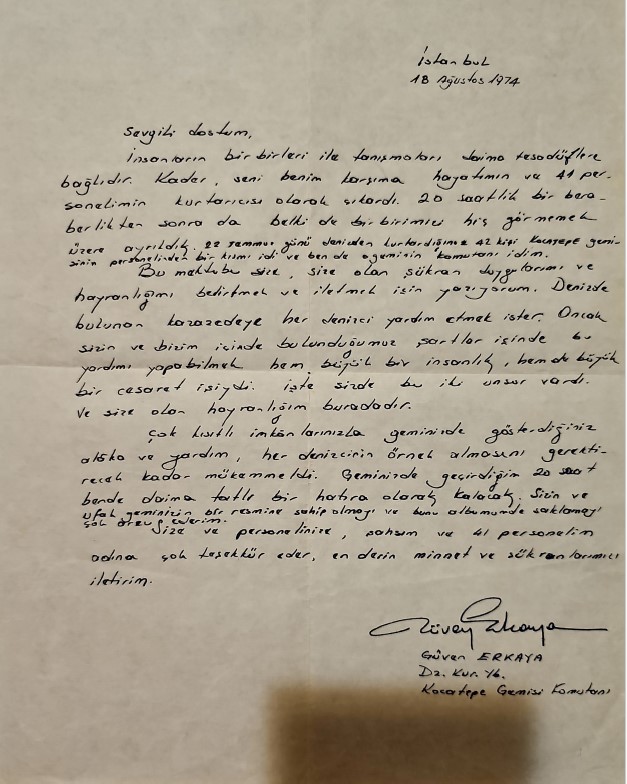 İstanbul
18 Ağustos 1974
Sevgili dostum,
İnsanların bir birleri ile tanışmaları daima tesadüflere
bağlıdır. Kader, seni benim karşıma hayatımın ve 41 per-
sonelimin kurtarıcısı olarak çıkardı. 20 saatlik bir bera-
berlikten sonra da belki de bir birimizi hiç görmemek
üzere ayrıldık. 22 Temmuz günü denizden kurtardığınız 42 kişi Kocatepe gemi-
sinin personelinden bir kısmı idi ve ben de o geminin komutanı idim.
Bu mektubu size, size olan şükran duygularımı ve
hayranlığımı belirtmek ve iletmek için yazıyorum. Denizde
bulunan kazazedeye her denizci yardım etmek ister. Ancak
sizin ve bizim içinde bulunduğumuz şartlar içinde bu
yardımı yapabilmek hem büyük bir insanlık, hem de büyük
bir cesaret işiydi. İşte sizde bu iki unsur vardı.
Ve size olan hayranlığım buradadır.
Çok kısıtlı imkânlarınızla geminizde gösterdiğiniz
alâka ve yardım, her denizcinin örnek almasını gerekti-
recek kadar mükemmeldi. Geminizde geçirdiğim 20 saat
bende daima tatlı bir hatıra olarak kalacak. Sizin ve
ufak geminizin bir resmine sahip olmayı ve bunu albumumde saklamayı
çok arzu ederim.
Size ve personelinize, şahsım ve 41 personelim
adına çok teşekkür eder, en derin minnet ve şükranlarımızı
iletirim.
Güven Erkaya
Güven ERKAYA
Dz. Kur. Yb.
Kocatepe Gemisi Komutanı